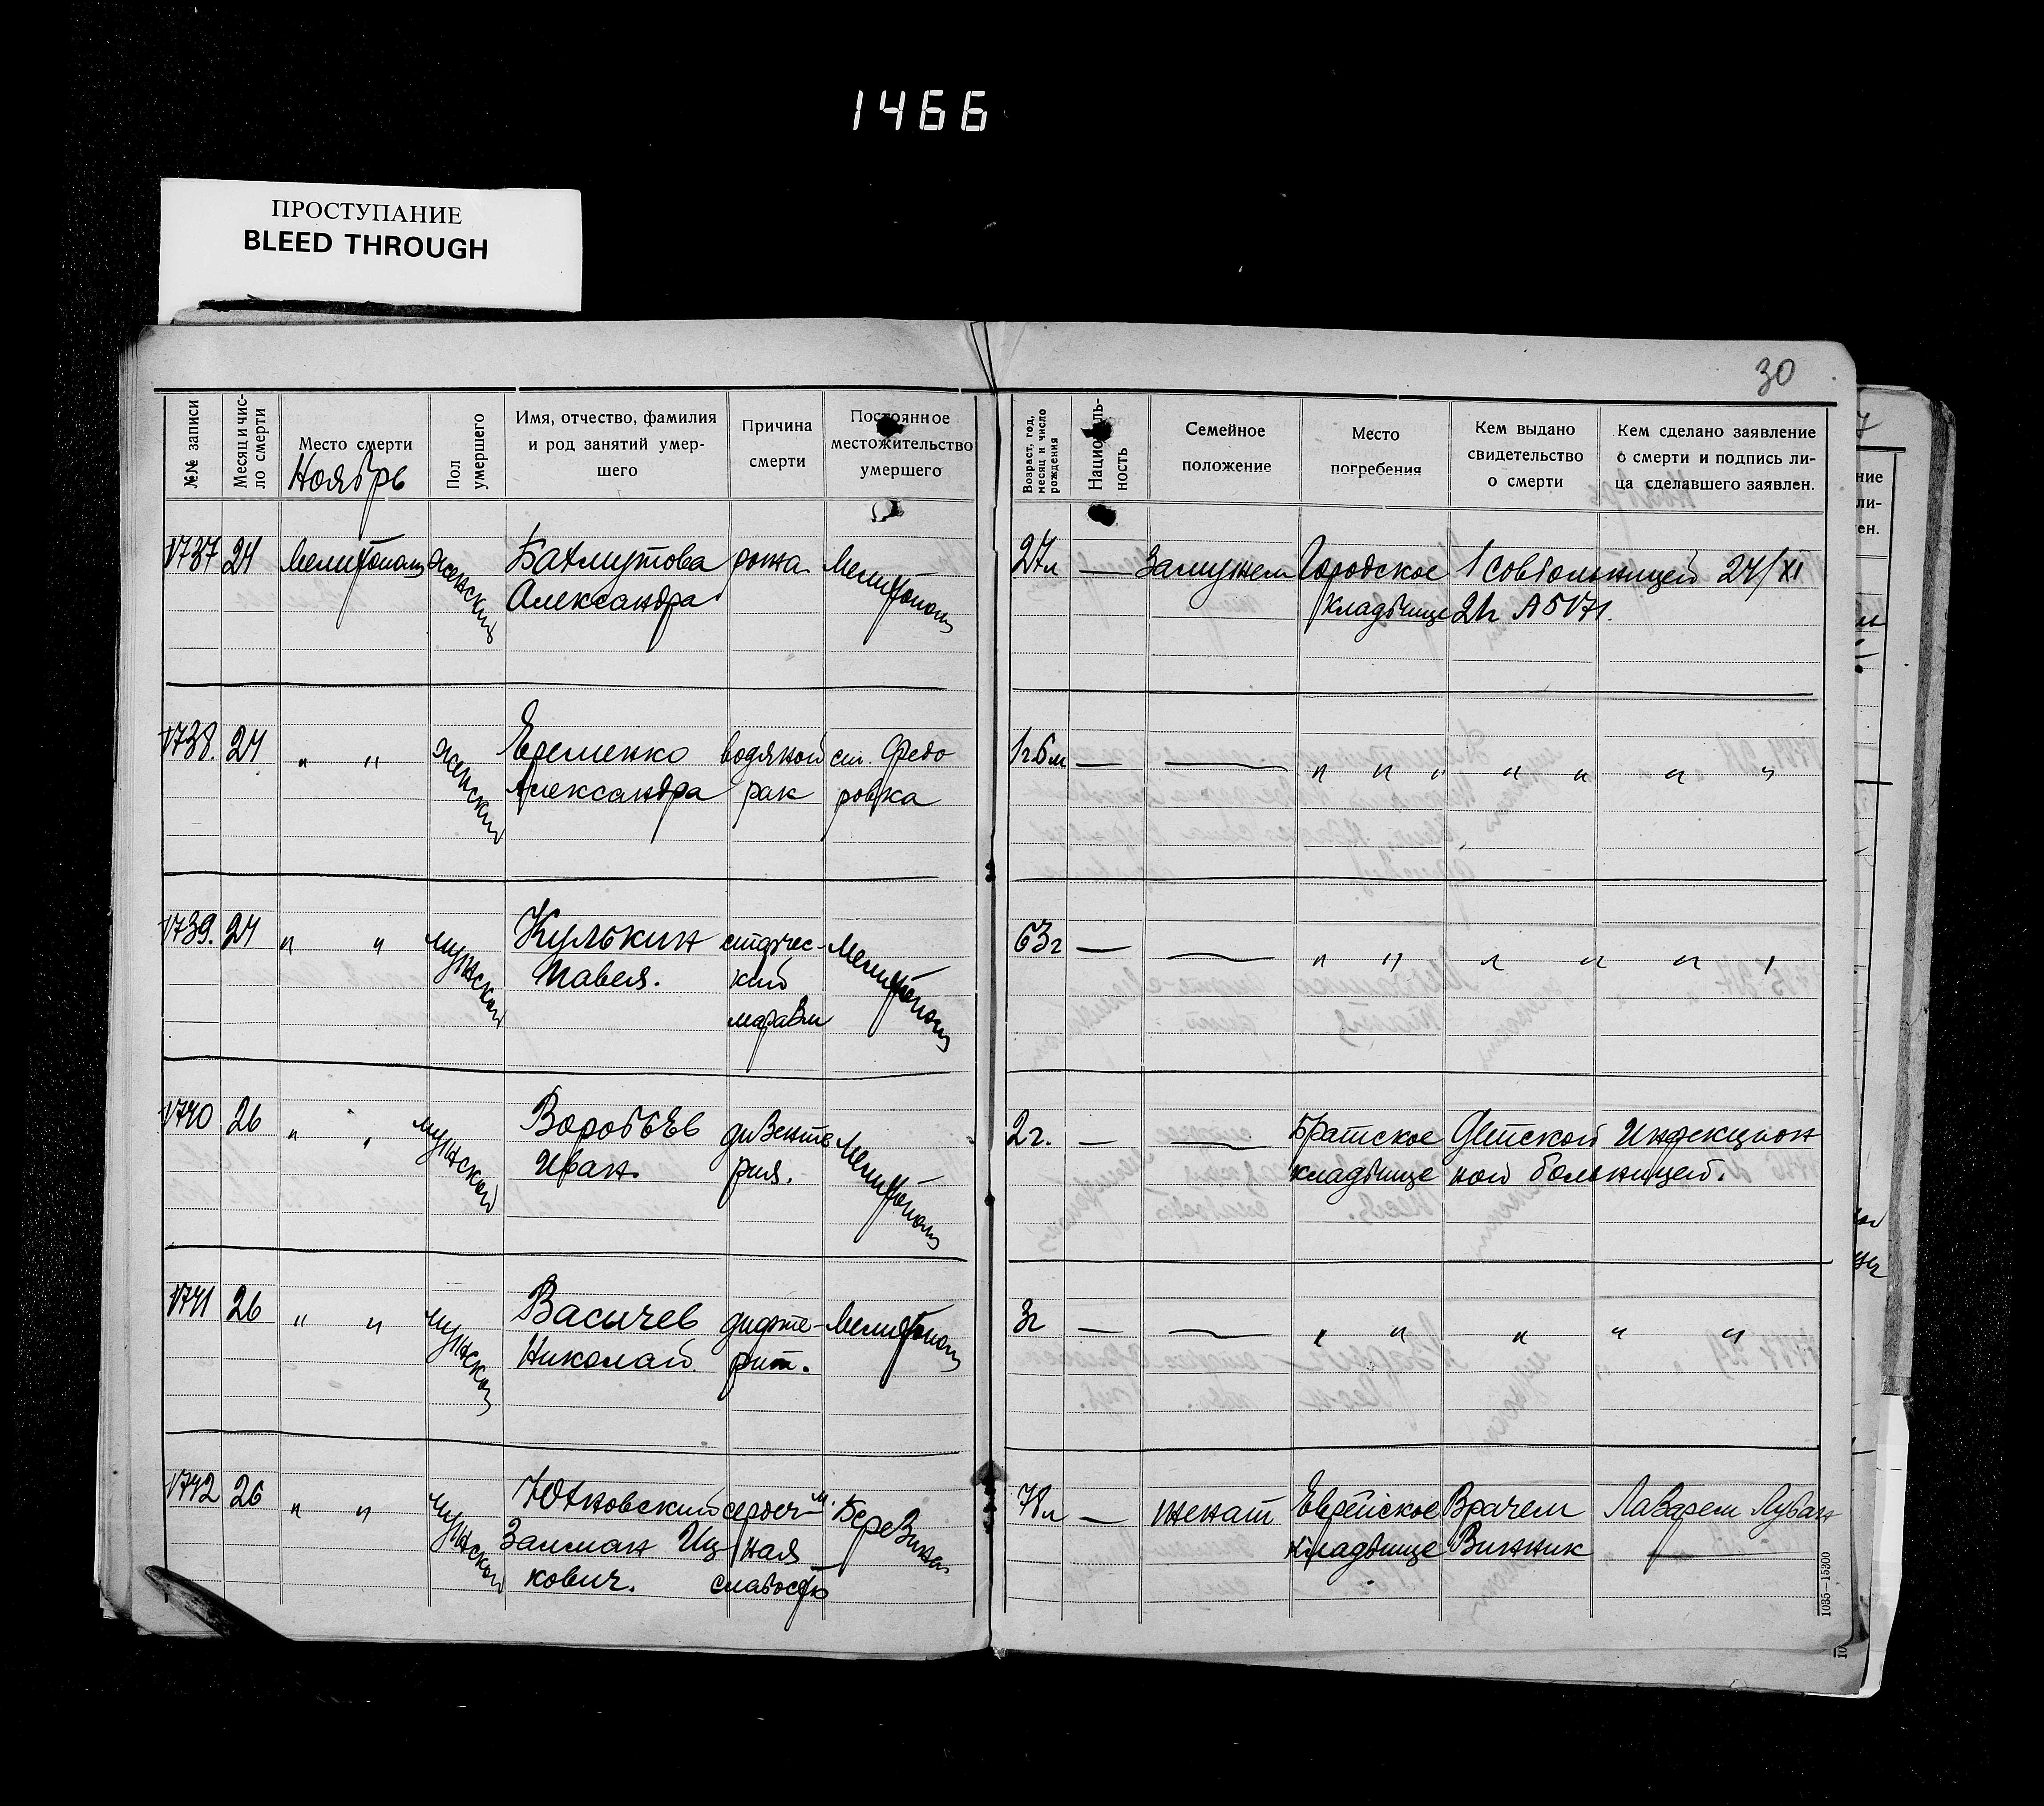 1466
ПРОСТУПАНИЕ
BLEED THROUGH
30
№№ записи
Месяц и чис-
ло смерти
Место смерти
Ноябрь
Пол
умершего
Имя, отчество, фамилия
и род занятий умер-
шего
Причина
смерти
Постоянное
местожительство
умершего
Возраст, год,
месяц и число
рождения
Националь-
ность
Семейное
положение
Место
погребения
Кем выдано
свидетельство
о смерти
Кем сделано заявление
о смерти и подпись ли-
ца сделавшего заявлен.
1737 24 Мелитополь женский Бахмутова рожа Мелитополь 27л — Замужем Городское 1 Совбольницей 24/XI
Александра кладбище
1738. 24 " " женский Еременко водяной ст. Федо 1г6м — — " " " " " " "
Александра рак ровка
1739. 24 " " мужской Кулькин старчес- Мелитополь 63г — — " " " " " "
Павел. кий
маразм
1740 26 " " мужской Воробьев дизенте Мелитополь 2г. — — Братское Детской Инфекцион
Иван рия. кладбище ной больницей.
1741 26 " " мужской Васычев дифте- Мелитополь 3г — — " " " " "
Николай рит.
1742 26 " " мужской сердеч м. Березина 78л — женат Еврейское Врачем
Залман Иц ная кладбище Винник —
кович. слабость
1035—15300